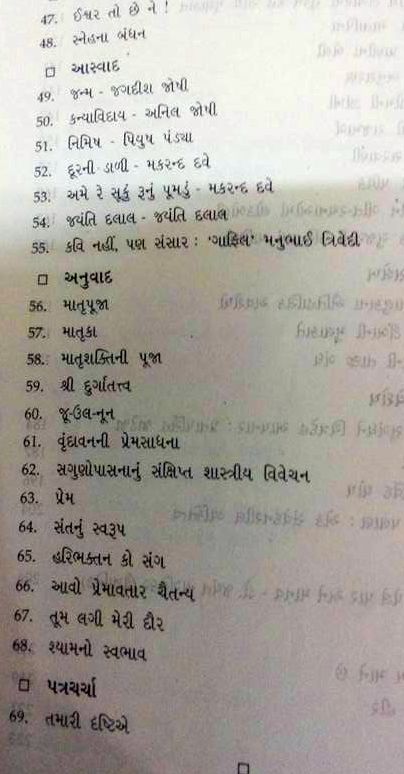 47. ઈશ્વર તો છે ને !
48. સ્નેહના બંધન
□ આસ્વાદ
49. જન્મ - જગદીશ જોષી
50. કન્યાવિદાય - અનિલ જોષી
51. નિમિષ - પિયુષ પંડ્યા
52. દૂરની ડાળી - મકરન્દ દવે
53. અમે રે સૂકું રૂનું પૂમડું - મકરન્દ દવે
54. જયંતિ દલાલ - જયંતિ દલાલ
55. કવિ નહીં, પણ સંસાર : 'ગાફિલ' મનુંભાઈ ત્રિવેદી
□ અનુવાદ
56. માતૃપૂજા
57. માતૃકા
58. માતૃશક્તિની પૂજા
59. શ્રી દુર્ગાતત્ત્વ
60. જૂ-ઉલ-નૂન
61. વૃંદાવનની પ્રેમસાધના
62. સગુણોપાસનાનું સંક્ષિપ્ત શાસ્ત્રીય વિવેચન
63. પ્રેમ
64. સંતનું સ્વરૂપ
65. હરિભક્તન કો સંગ
66. આવો પ્રેમાવતાર ચૈતન્ય
67. તૂમ લગી મેરી દૌર
68. શ્યામનો સ્વભાવ
□ પત્રચર્ચા
69. તમારી દૃષ્ટિએ